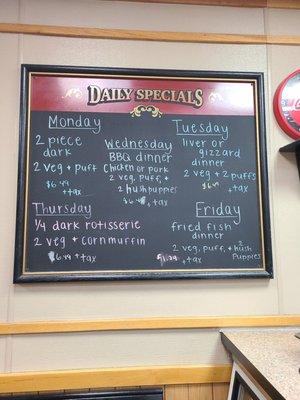 DAILY SPECIALS
Monday
2 piece
dark
2 veg + puff
$6.49
+tax
Wednesday
BBQ dinner
Chicken or pork
2 veg, puff, +
2 hushpuppies
+ tax
Tuesday
liver or
gizzard
dinner
2 veg + 2 puffs
+tax
Thursday
1/4 dark rotisserie
2 veg + cornmuffin
$6.49 + tax
Friday
fried fish
dinner
2 veg, puff, + 2 hush
puppies
+ tax